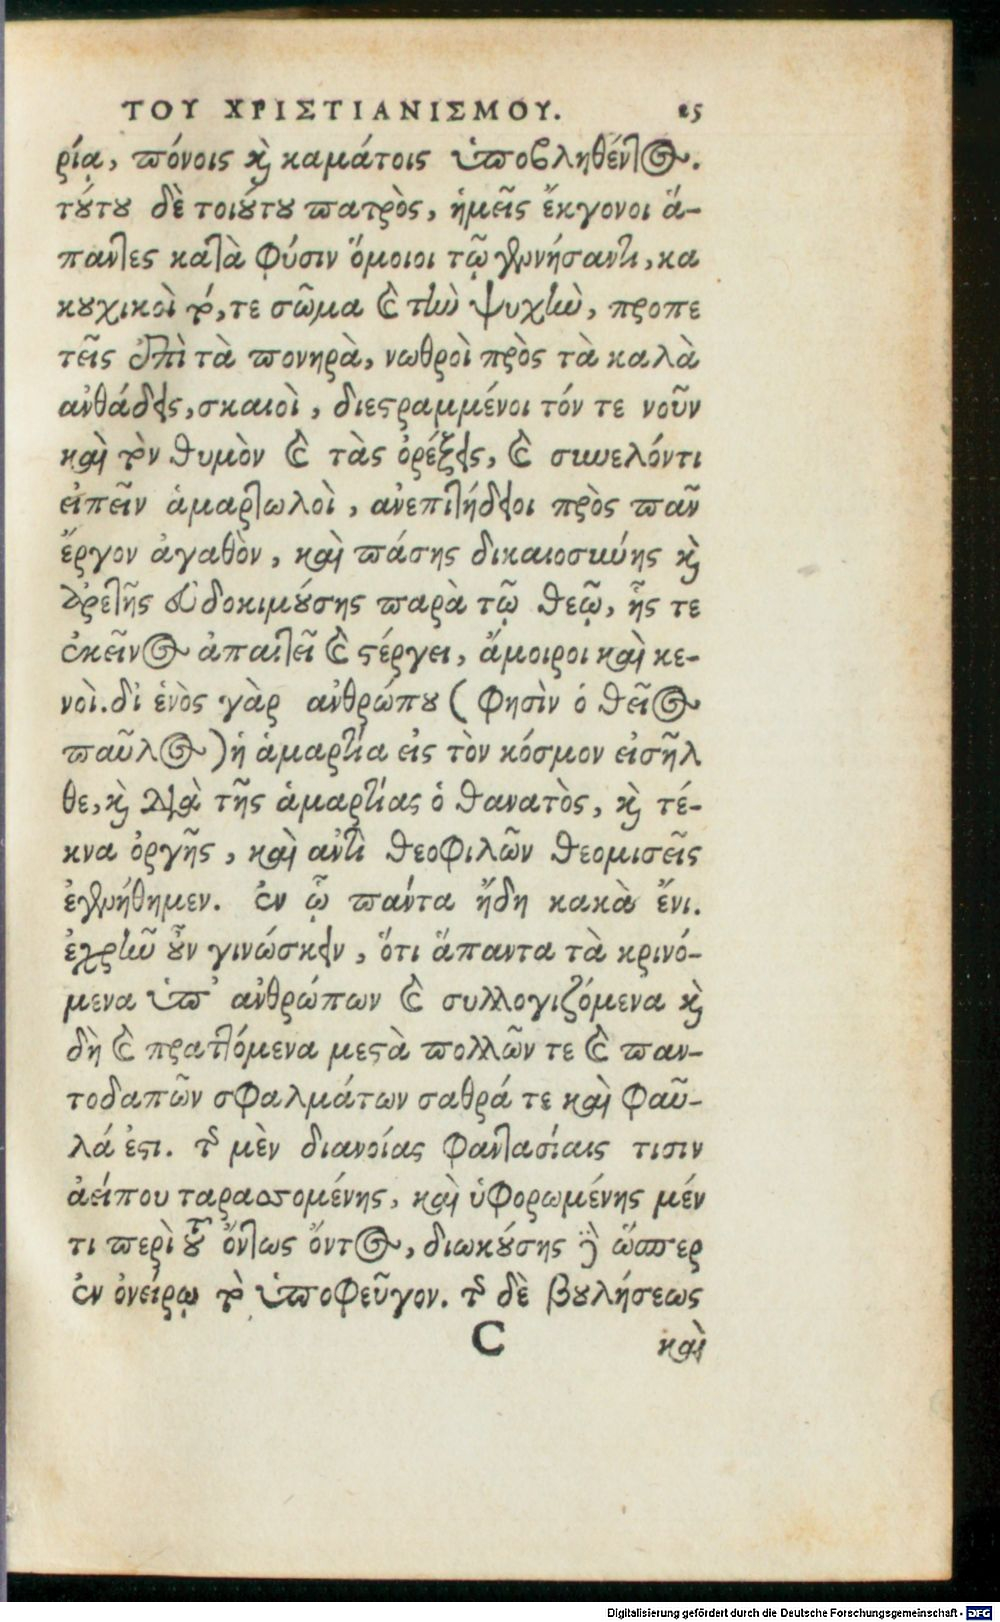 ΤΟΥ ΧΡΙΣΤΙΑΝΙΣΜΟΥ. 25
ρίᾳ, πόνοις καὶ καμάτοις ὑποβληθέντος.
τούτου δὲ τοιούτου πατρὸς, ἡμεῖς ἔκγονοι ἅ-
παντες κατὰ φύσιν ὅμοιοι τῷ γεννήσαντι, κα
κουχικοὶ τό, τε σῶμα καὶ τὴν ψυχὴν, προπε
τεῖς ἐπὶ τὰ πονηρὰ, νωθροὶ πρὸς τὰ καλὰ
αὐθάδεις, σκαιοὶ, διεστραμμένοι τόν τε νοῦν
καὶ τὸν θυμὸν καὶ τὰς ὀρέξεις, καὶ συνελόντι
εἰπεῖν ἁμαρτωλοὶ, ἀνεπιτήδειοι πρὸς πᾶν
ἔργον ἀγαθὸν, καὶ πάσης δικαιοσύνης καὶ
ἀρετῆς εὐδοκιμούσης παρὰ τῷ θεῷ, ἧς τε
ἐκεῖνος ἀπαιτεῖ καὶ στέργει, ἄμοιροι καὶ κε-
νοὶ. δι ἑνὸς γὰρ ἀνθρώπου (φησὶν ὁ θεῖος
παῦλος) ἡ ἁμαρτία εἰς τὸν κόσμον εἰσῆλ
θε, καὶ διὰ τῆς ἁμαρτίας ὁ θανατὸς, καὶ τέ-
κνα ὀργῆς, καὶ ἀντὶ θεοφιλῶν θεομισεῖς
ἐγενήθημεν. ἐν ᾧ πάντα ἤδη κακὰ ἔνι.
ἐχρῆν οὖν γινώσκειν, ὅτι ἅπαντα τὰ κρινό-
μενα ὑπ' ἀνθρώπων καὶ συλλογιζόμενα καὶ
δὴ καὶ πραττόμενα μετὰ πολλῶν τε καὶ παν-
τοδαπῶν σφαλμάτων σαθρά τε καὶ φαῦ-
λά ἐστι. τῆς μὲν διανοίας φαντασίαις τισιν
ἀείπου ταρασσομένης, καὶ ὑφορωμένης μέν
τι περὶ τοῦ ὄντως ὄντος, διωκούσης δὲ ὥσπερ
ἐν ὀνείρῳ τὸ ὑποφεῦγον. τῆς δὲ βουλήσεως
C καὶ
Digitalisierung gefördert durch die Deutsche Forschungsgemeinschaft - DFG